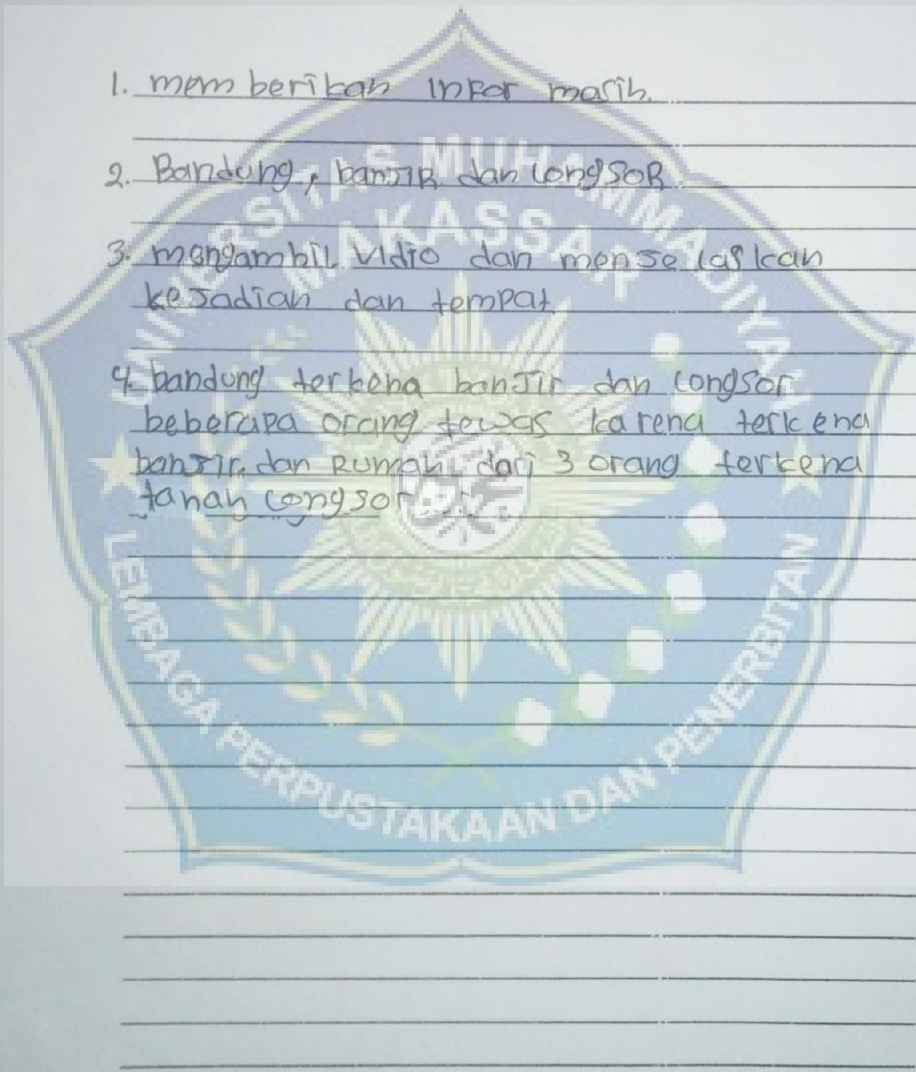 1. mem berikan infor masih.
2. Bandung, banJIR dan longSOR
3. mengambil vidio dan menJelaskan
keJadian dan tempat
4. bandung terkena banJir dan longsor
beberapa orang tewas karena terkena
banJir, dan Rumah dari 3 orang terkena
tanah longsor
UNIVERSITAS MUHAMMADIYAH
MAKASSAR
LEMBAGA PERPUSTAKAAN DAN PENERBITAN